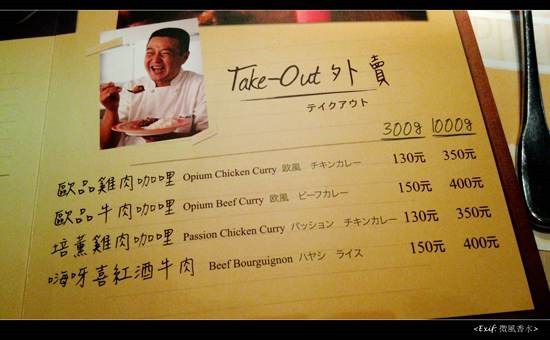 Take-Out 外賣
テイクアウト
300g 1000g
歐品雞肉咖哩 Opium Chicken Curry 欧風 チキンカレー 130元 350元
歐品牛肉咖哩 Opium Beef Curry 欧風 ビーフカレー 150元 400元
培薰雞肉咖哩 Passion Chicken Curry パッション チキンカレー 130元 350元
嗨呀喜紅酒牛肉 Beef Bourguignon ハヤシ ライス 150元 400元
<Exif: 微風香水>